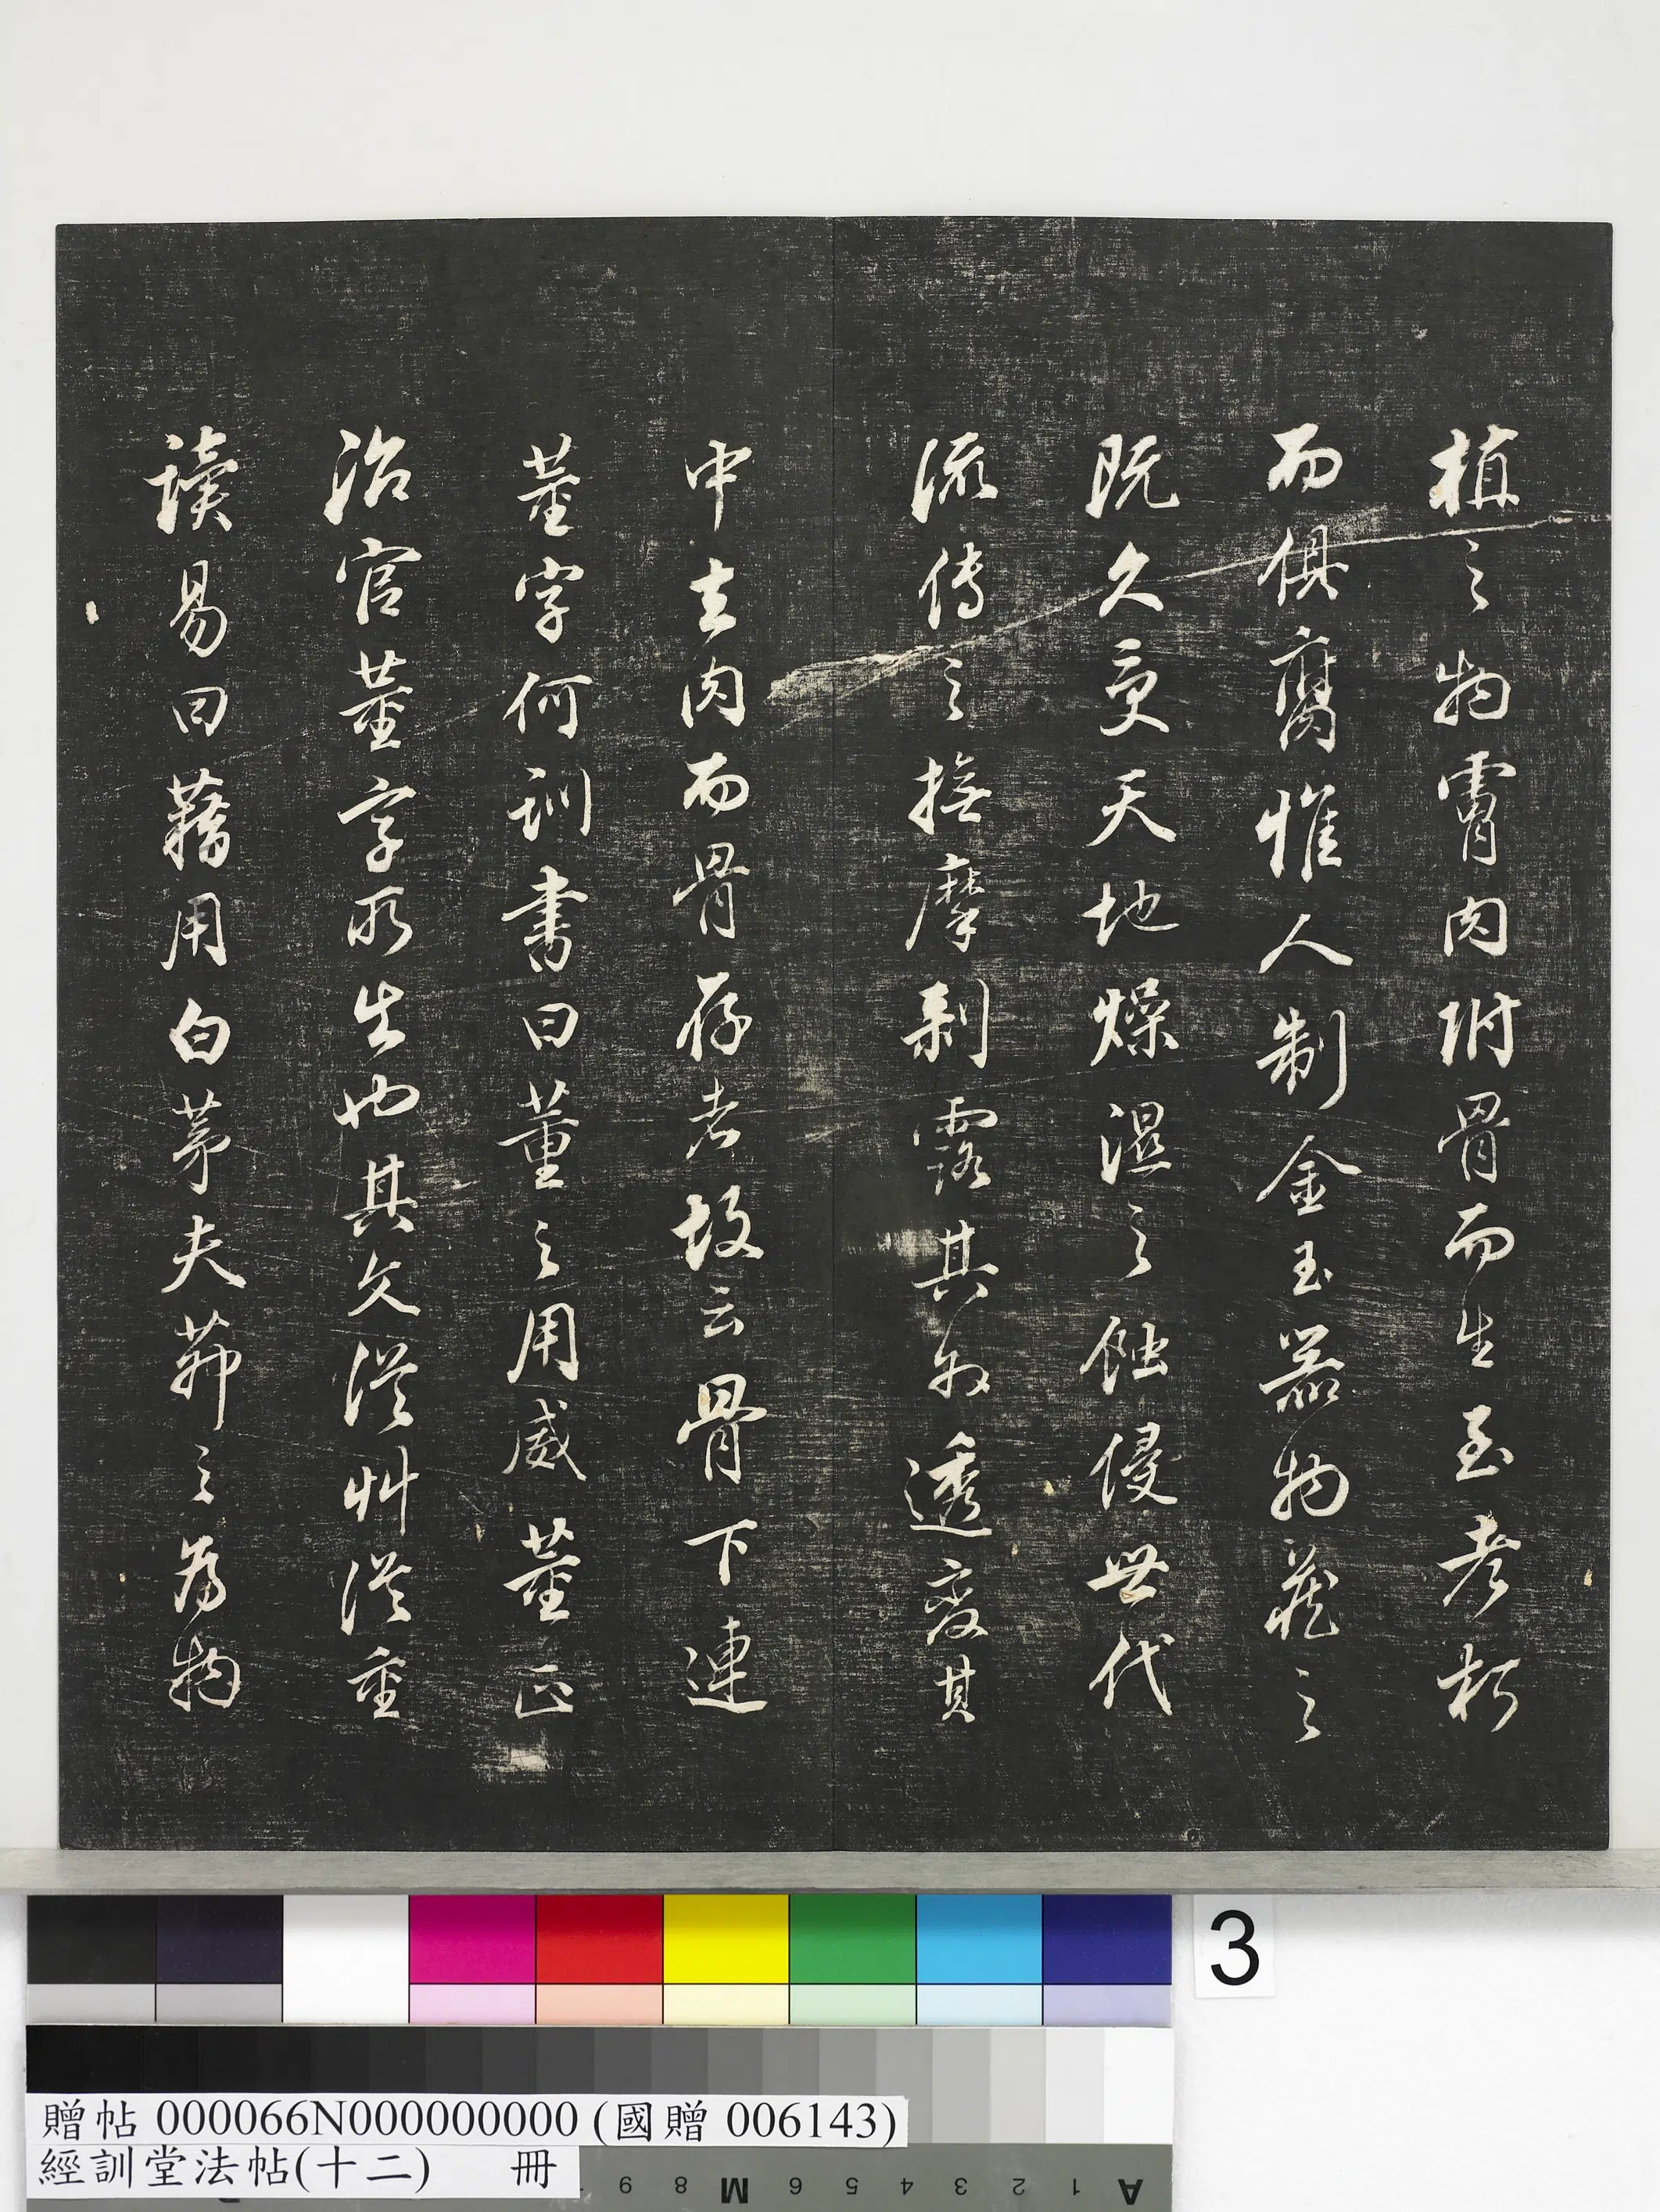 植之物膏肉附骨而生至老朽
而俱腐惟人制金玉器物藏之
既久更天地燥濕之蝕侵世代
流傳之撫摩剥露其外透變其
中去肉而骨存者故云骨下連
董字何訓書曰董之用威董正
治官董字所出也其文從艸從重
讀易曰藉用白茅夫茅之為物
3
贈帖 000066N000000000 (國贈 006143)
經訓堂法帖(十二) 冊
A 1 2 3 4 5 6 M 8 9